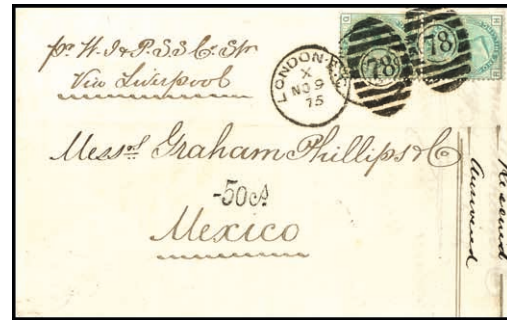 pr W. I & P. S S Co. Str
Via Liverpool
LONDON·E.C
X
NO 9
75
78
78
Messrs Graham Phillips & Co
-50cs
Mexico
Received
Answered